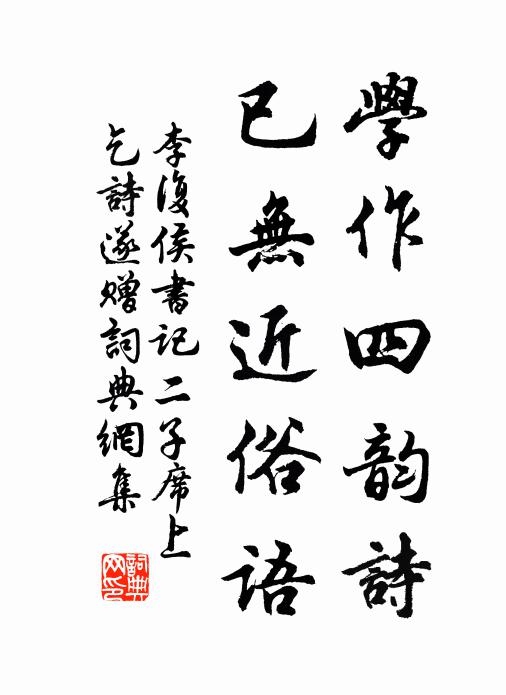 學作四韵詩
已無近俗语
李復侯書记二子席上
乞詩遂赠詞典網集
詞典网印